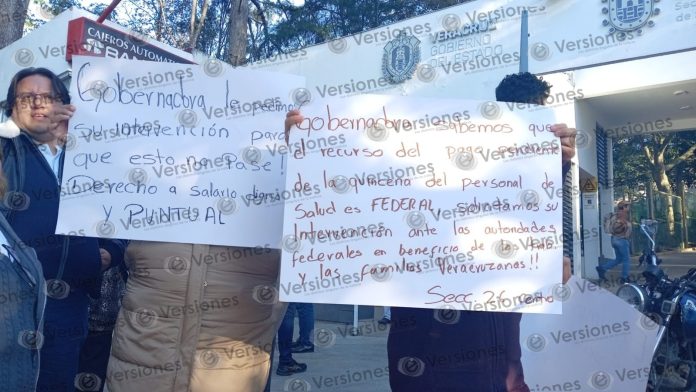 CAJEROS AUTOMATI
VERACRUZ
GOBIERNO
DEL ESTADO
Gobernadora le pedimos
su intervención para
que esto no pase!
Derecho a salario digno
y PUNTUAL
Gobernadora sabemos que
el recurso del pago pendiente
de la quincena del personal de
Salud es FEDERAL solicitamos su
Intervención ante las autoridades
federales en beneficio de los
y las familias Veracruzanas!!
Secc. 26
Versiones